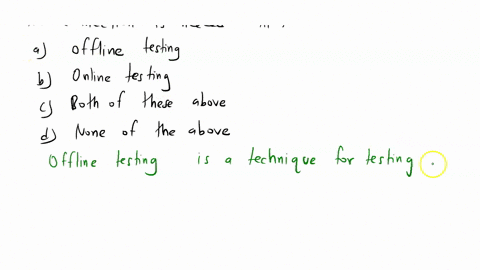 a) Offline testing
b) Online testing
c) Both of these above
d) None of the above
Offline testing is a technique for testing